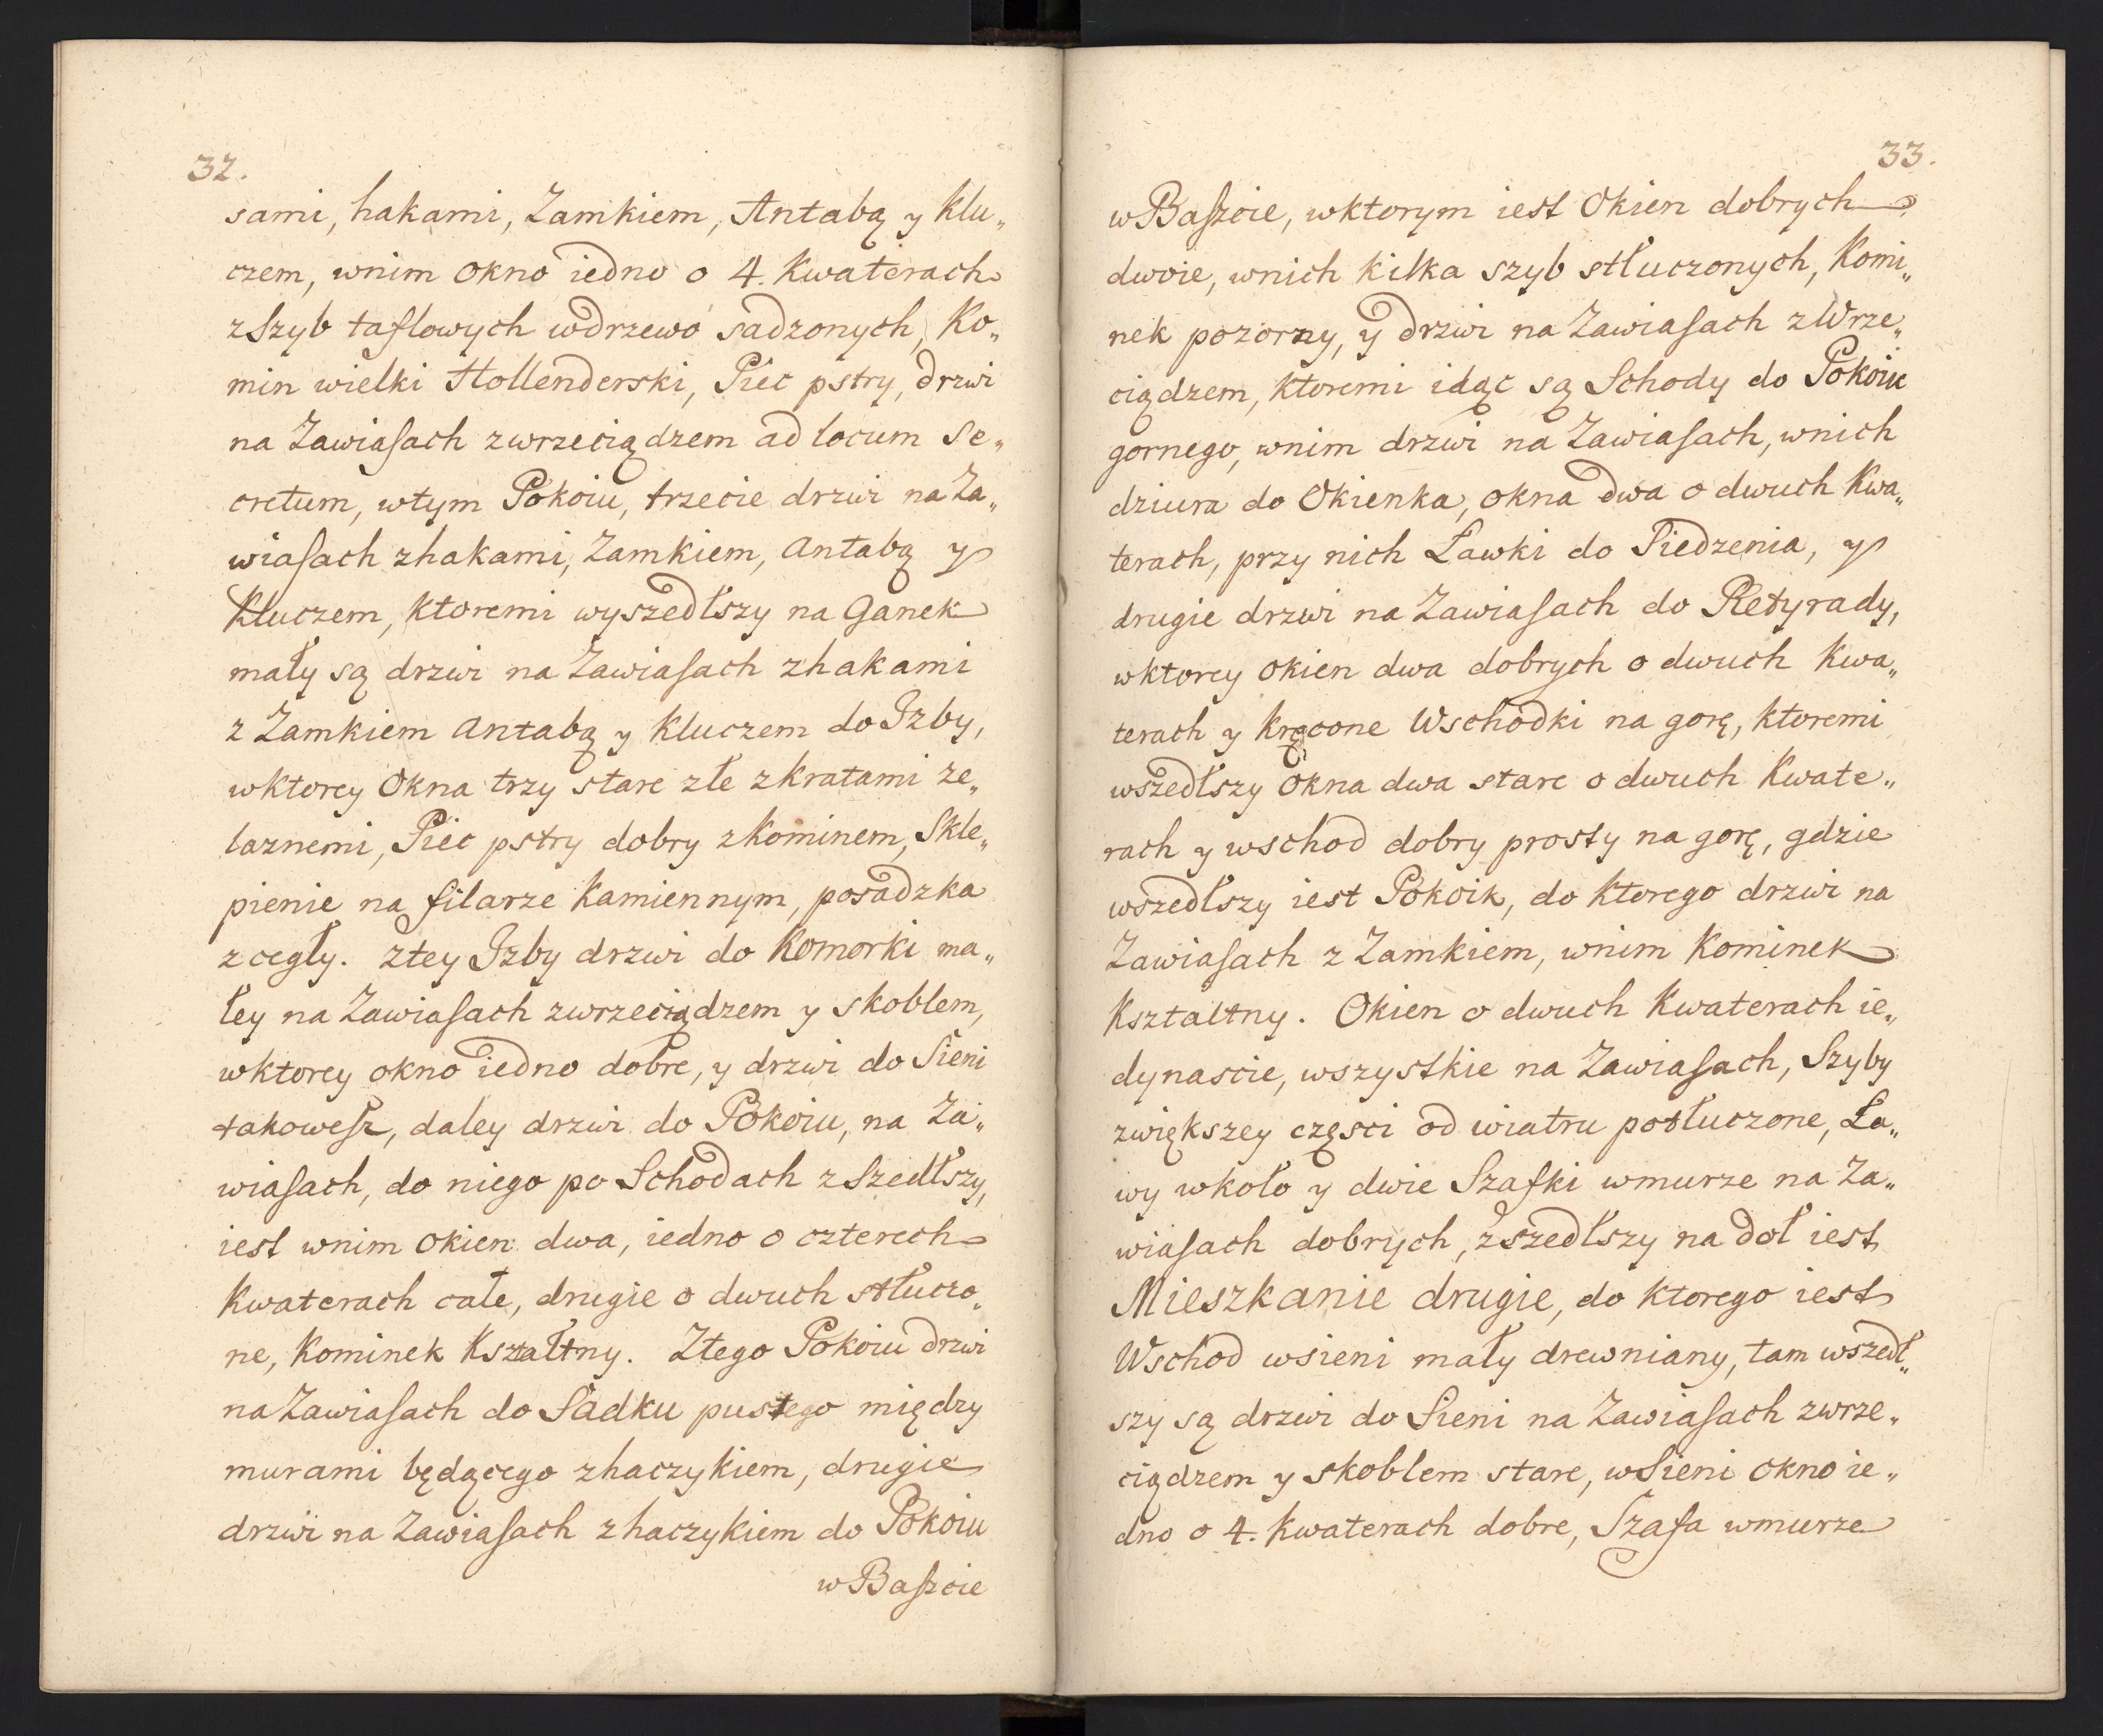 32.
sami, hakami, Zamkiem, Antabą y Klu„
czem, wnim Okno iedno o 4. Kwaterach
zSzyb taflowych wdrzewo sadzonych, Ko„
min wielki Hollenderski, Piec pstry, drzwi
na Zawiaſach zwrzeciądzem ad locum Se„
cretum, wtym Pokoiu, trzecie drzwi na Za„
wiaſach zhakami, Zamkiem, Antabą y
Kluczem, Ktoremi wyszedłszy na Ganek
mały są drzwi na Zawiaſach zhakami
z Zamkiem Antabą y Kluczem do Izby,
wktorey Okna trzy stare złe zkratami że„
laznemi, Piec pstry dobry zKominem, Skle„
pienie na filarze Kamiennym, posadzka
zcegły. ztey Izby drzwi do Komorki ma„
łey na Zawiaſach zwrzeciądzem y skoblem,
wktorey okno iedno dobre, y drzwi do Sieni
takoweſz, daley drzwi do Pokoiu, na Za„
wiaſach, do niego po Schodach zSzedłszy,
iest wnim Okien dwa, iedno o czterech
Kwaterach całe, drugie o dwuch stłuczo„
ne, Kominek Kształtny. Ztego Pokoiu drzwi
na Zawiaſach do Sadku pustego między
murami będącego zhaczykiem, drugie
drzwi na Zawiaſach zhaczykiem do Pokoiu
wBaſzcie
33.
wBaſzcie, wktorym iest Okien dobrych
dwoie, wnich Kilka szyb stłuczonych, Komi„
nek pozorny, y drzwi na Zawiaſach zWrze„
ciądzem, Ktoremi idąc są Schody do Pokoiu
gornego, wnim drzwi na Zawiaſach, wnich
dziura do Okienka, okna dwa o dwuch Kwa„
terach, przy nich Ławki do Siedzenia, y
drugie drzwi na Zawiaſach do Retyrady,
wktorey Okien dwa dobrych o dwuch Kwa„
terach y Kręcone Wschodki na gorę, Ktoremi
wszedłszy Okna dwa stare o dwuch Kwate„
rach y wschod dobry prosty na gorę, gdzie
wszedłszy iest Pokoik, do Ktorego drzwi na
Zawiaſach z Zamkiem, wnim Kominek
Kształtny. Okien o dwuch Kwaterach ie„
dynascie, wszystkie na Zawiaſach, Szyby
zwiększey częsci od wiatru potłuczone, Ła„
wy wkoło y dwie Szafki wmurze na Za„
wiaſach dobrych, zszedłszy na doł iest
Mieszkanie drugie, do Ktorego iest
Wschod wsieni mały drewniany, tam wszedł„
szy są drzwi do Sieni na Zawiaſach zwrze„
ciądzem y skoblem stare, wSieni Okno ie„
dno o 4. Kwaterach dobre, Szafa wmurze